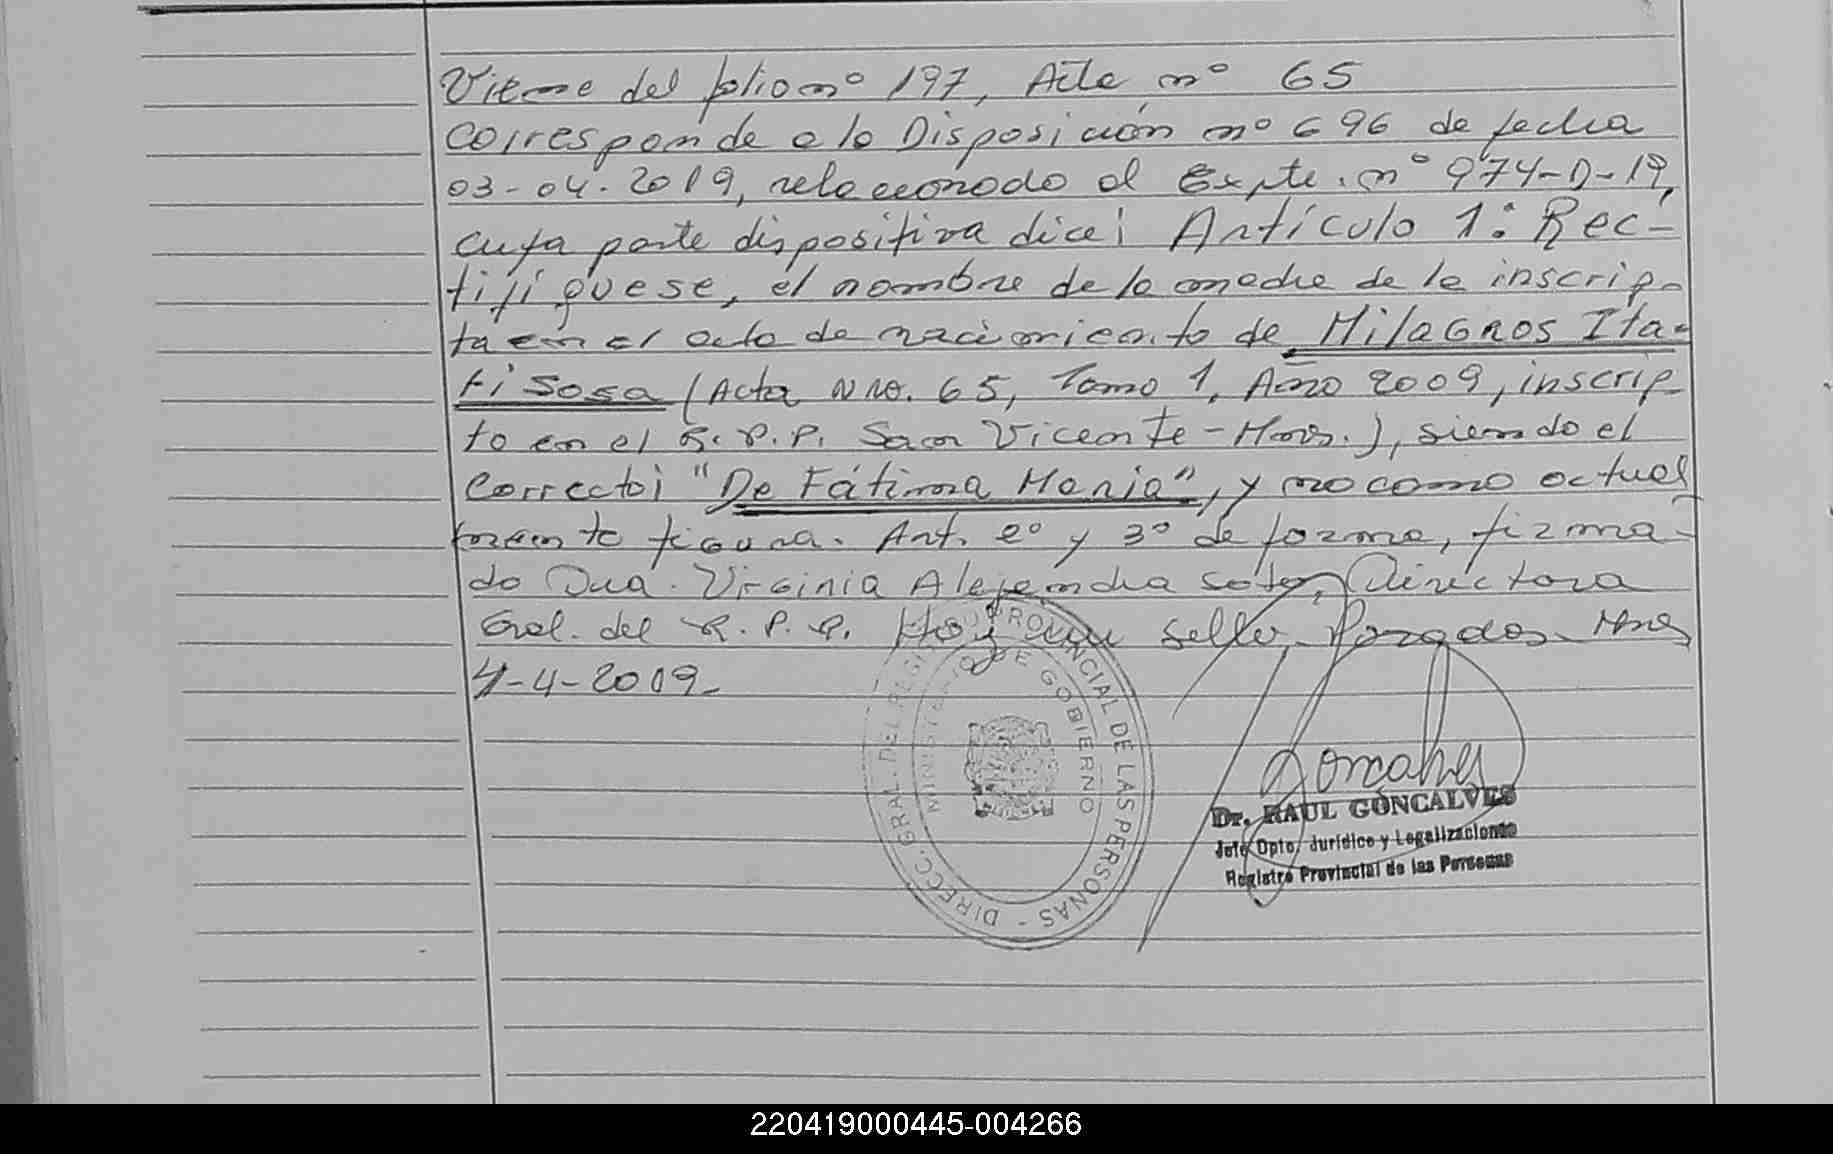 Viene del folio nº 197, Acta nº 65
Corresponde a la Disposición nº 696 de fecha
03-04-2019, relacionado al Expte. nº 974-D-19,
cuya parte dispositiva dice: Artículo 1: Rec-
tifíquese, el nombre de la madre de la inscrip-
ta en el acta de nacimiento de Milagros Ita-
ti Sosa (Acta Nro. 65, Tomo 1, Año 2009, inscrip-
to en el R.P.P. San Vicente-Mnes.), siendo el
correcto: "De Fátima Maria", y no como actual
mente figura. Art. 2º y 3º de forma, firma-
do Dra. Virginia Alejandra Soto, Directora
Gral. del R.P.P. Hay un sello. Posadas Mnes
4-4-2019-
DIRECC. GRAL. DEL REGISTRO PROVINCIAL DE LAS PERSONAS -
MINISTERIO DE GOBIERNO
Goncalves
Dr. RAUL GONCALVES
Jefe Dpto. Jurídico y Legalizaciones
Registro Provincial de las Personas
220419000445-004266